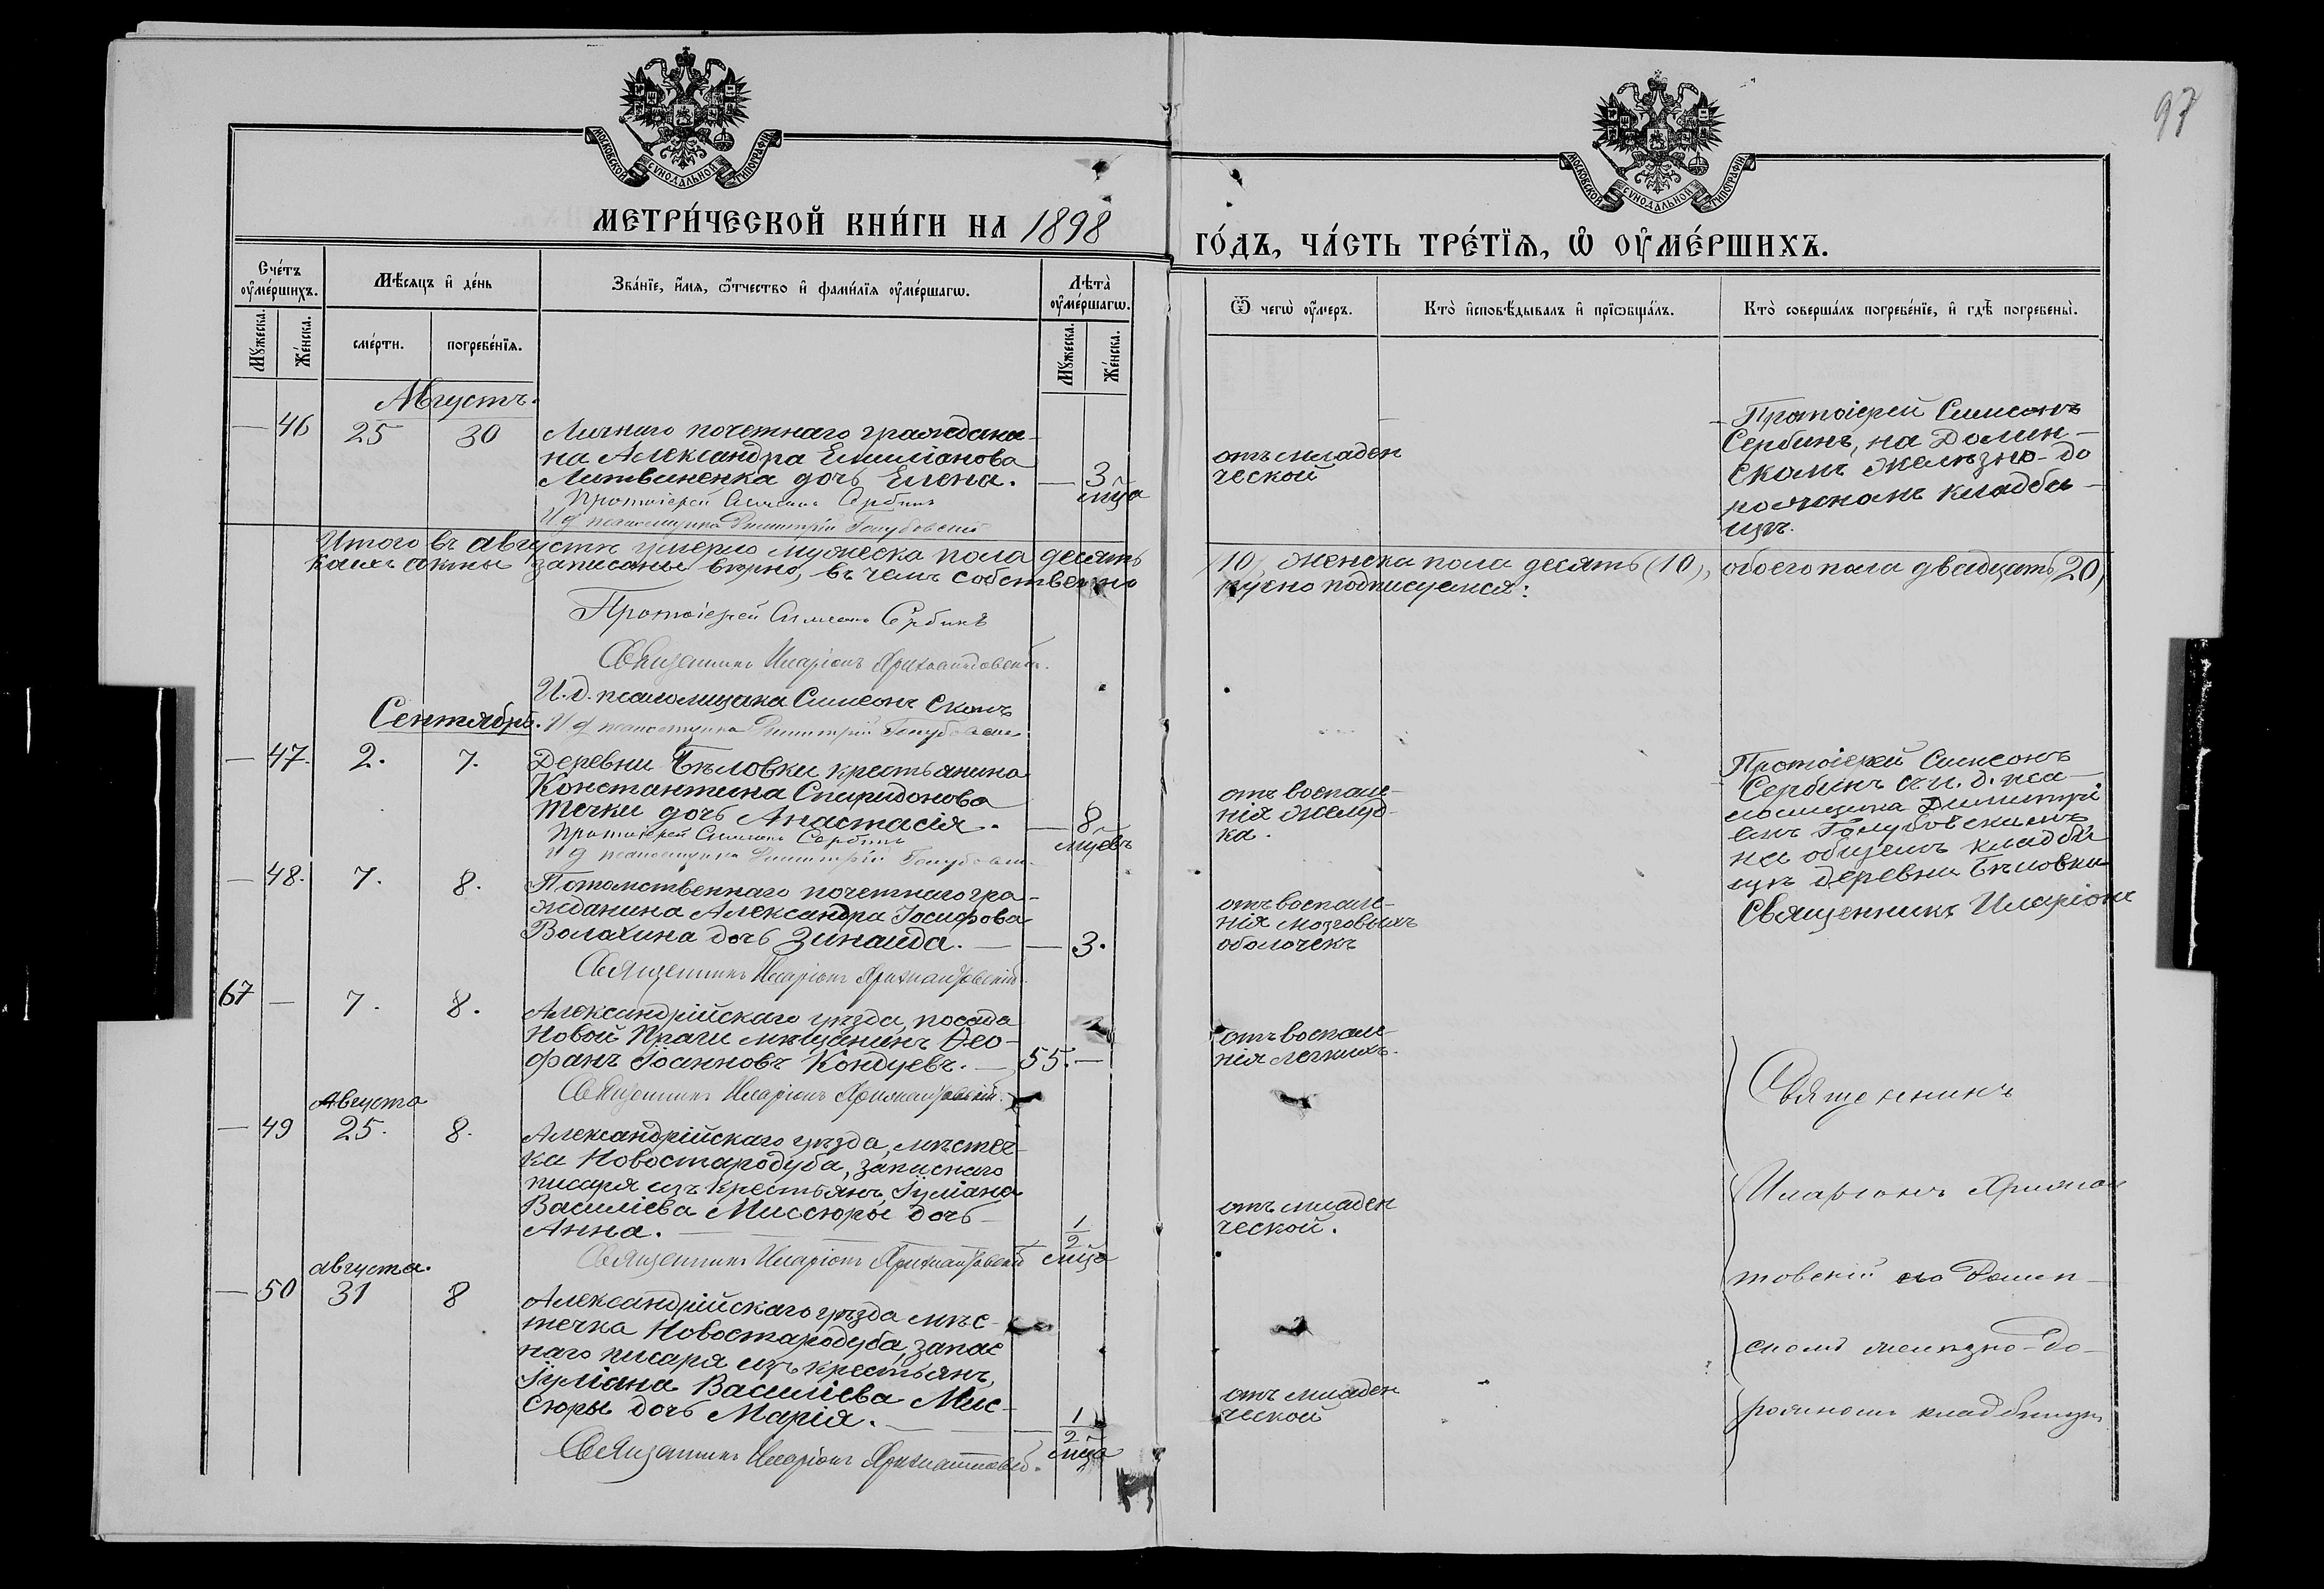 97
МОСКОВСКОЙ СѴНОДАЛЬНОЙ ТИПОГРАФІИ
МОСКОВСКОЙ СѴНОДАЛЬНОЙ ТИПОГРАФІИ
МЕТРИ́ЧЕСКОЙ КНИ́ГИ НА 1898
ГО́ДЪ, ЧА́СТЬ ТРЕ́ТЇѦ, Ѡ ОУ҆МЕ́РШИХЪ.
Сче́тъ оу҆ме́ршихъ.
Мѣ́сѧцъ и҆ де́нь
Зва́нїе, и҆́мѧ, ѻ҆́тчество и҆ фами́лїѧ оу҆ме́ршагѡ.
Лѣта̀ оу҆ме́ршагѡ.
Ѿ чегѡ̀ оу҆́меръ.
Кто̀ и҆сповѣ́дывалъ и҆ прїѡбща́лъ.
Кто̀ соверша́лъ погребе́нїе, и҆ гдѣ̀ погребены̀.
Мꙋ́жеска.
Же́нска.
сме́рти.
погребе́нїѧ.
Мꙋ́жеска.
Же́нска.
Августъ.
— 46 25 30
Личнаго почетнаго граждани-
на Александра Емиліанова
Литвиненка дочь Елена. — 3 мѣца
Протоіерей Симеонъ Сербинъ
И д псаломщика Димитрій Голубовскій
отъ младен
ческой
Протоіерей Симеонъ
Сербинъ, на Долин-
скомъ желѣзно-до
рожномъ кладби-
щѣ.
Итого въ августѣ умерло мужеска пола десять (10), женска пола десять (10), обоего пола двадцать (20)
каихъ акты записаны вѣрно, въ чемъ собственно ручно подписуемся:
Протоіерей Симеонъ Сербинъ
Священникъ Иларіонъ
И.д. псаломщика Симеонъ
И д псаломщика Димитрій Голубовскій
Сентябрь.
— 47. 2. 7.
Деревни Бѣловки крестьянина
Константина Спиридонова
Течки дочь Анастасія. — 8 мцевъ
Протоіерей Симеонъ Сербинъ
И д псаломщика Димитрій Голубовскій
отъ воспале-
нія желуд-
ка.
Протоіерей Симеонъ
Сербинъ и и. д. пса-
ломщика Димитрі
емъ Голубовскимъ
на общемъ кладби
щѣ деревни Бѣловки
— 48. 7. 8.
Потомственнаго почетнаго гра-
жданина Александра Іосифова
Волохина дочь Зинаида. — — 3.
Священникъ Иларіонъ
отъ воспале-
нія мозговыхъ
оболочекъ
Священникъ Иларіонъ
67 — 7. 8.
Александрійскаго уѣзда, посада
Новой Праги мѣщанинъ Ѳео-
фанъ Іоанновъ Кондуевъ. — 55. —
Священникъ Иларіонъ
отъ воспале-
нія легкихъ.
Священникъ
Августа
— 49 25. 8.
Александрійскаго уѣзда, мѣстеч-
ка Новостародуба, запаснаго
писаря изъ крестьянъ, Іуліана
Василіева Миссюры дочь
Анна. — 1/2 мца
Священникъ Иларіонъ
отъ младен
ческой.
Иларіонъ
товскій на Долин-
августа.
— 50 31 8
Александрійскаго уѣзда мѣс-
течка Новостародуба, запас
наго писаря изъ крестьянъ,
Іуліана Василіева Мис-
сюры дочь Марія. — 1/2 мца
Священникъ Иларіонъ
отъ младен
ческой
скомъ желѣзно-до-
рожномъ кладбищѣ